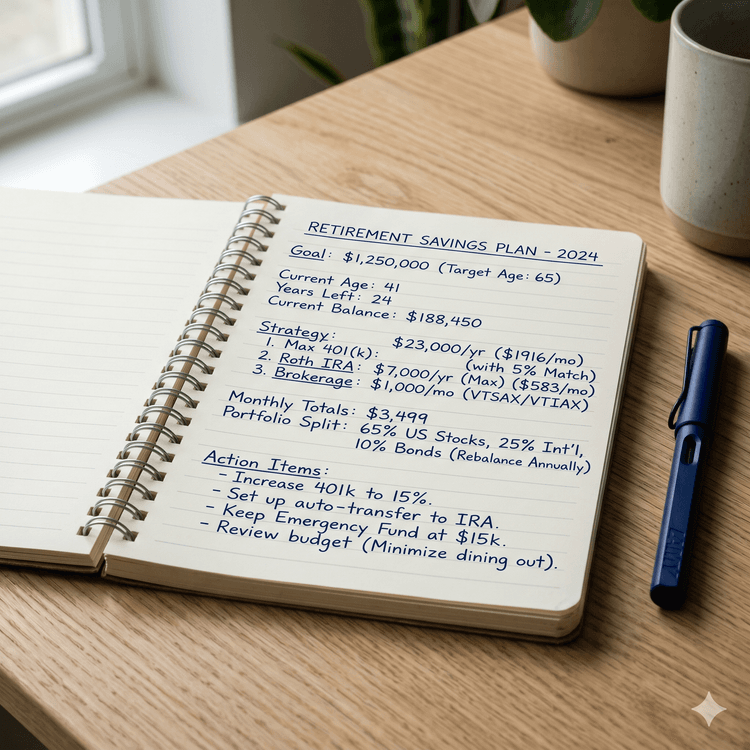 RETIREMENT SAVINGS PLAN - 2024
Goal: $1,250,000 (Target Age: 65)
Current Age: 41
Years Left: 24
Current Balance: $188,450
Strategy:
1. Max 401(k): $23,000/yr ($1916/mo)
(with 5% Match)
2. Roth IRA: $7,000/yr (Max) ($583/mo)
3. Brokerage: $1,000/mo (VTSAX/VTIAX)
Monthly Totals: $3,499
Portfolio Split: 65% US Stocks, 25% Int'l,
10% Bonds (Rebalance Annually)
Action Items:
- Increase 401k to 15%.
- Set up auto-transfer to IRA.
- Keep Emergency Fund at $15k.
- Review budget (Minimize dining out).
LAMY